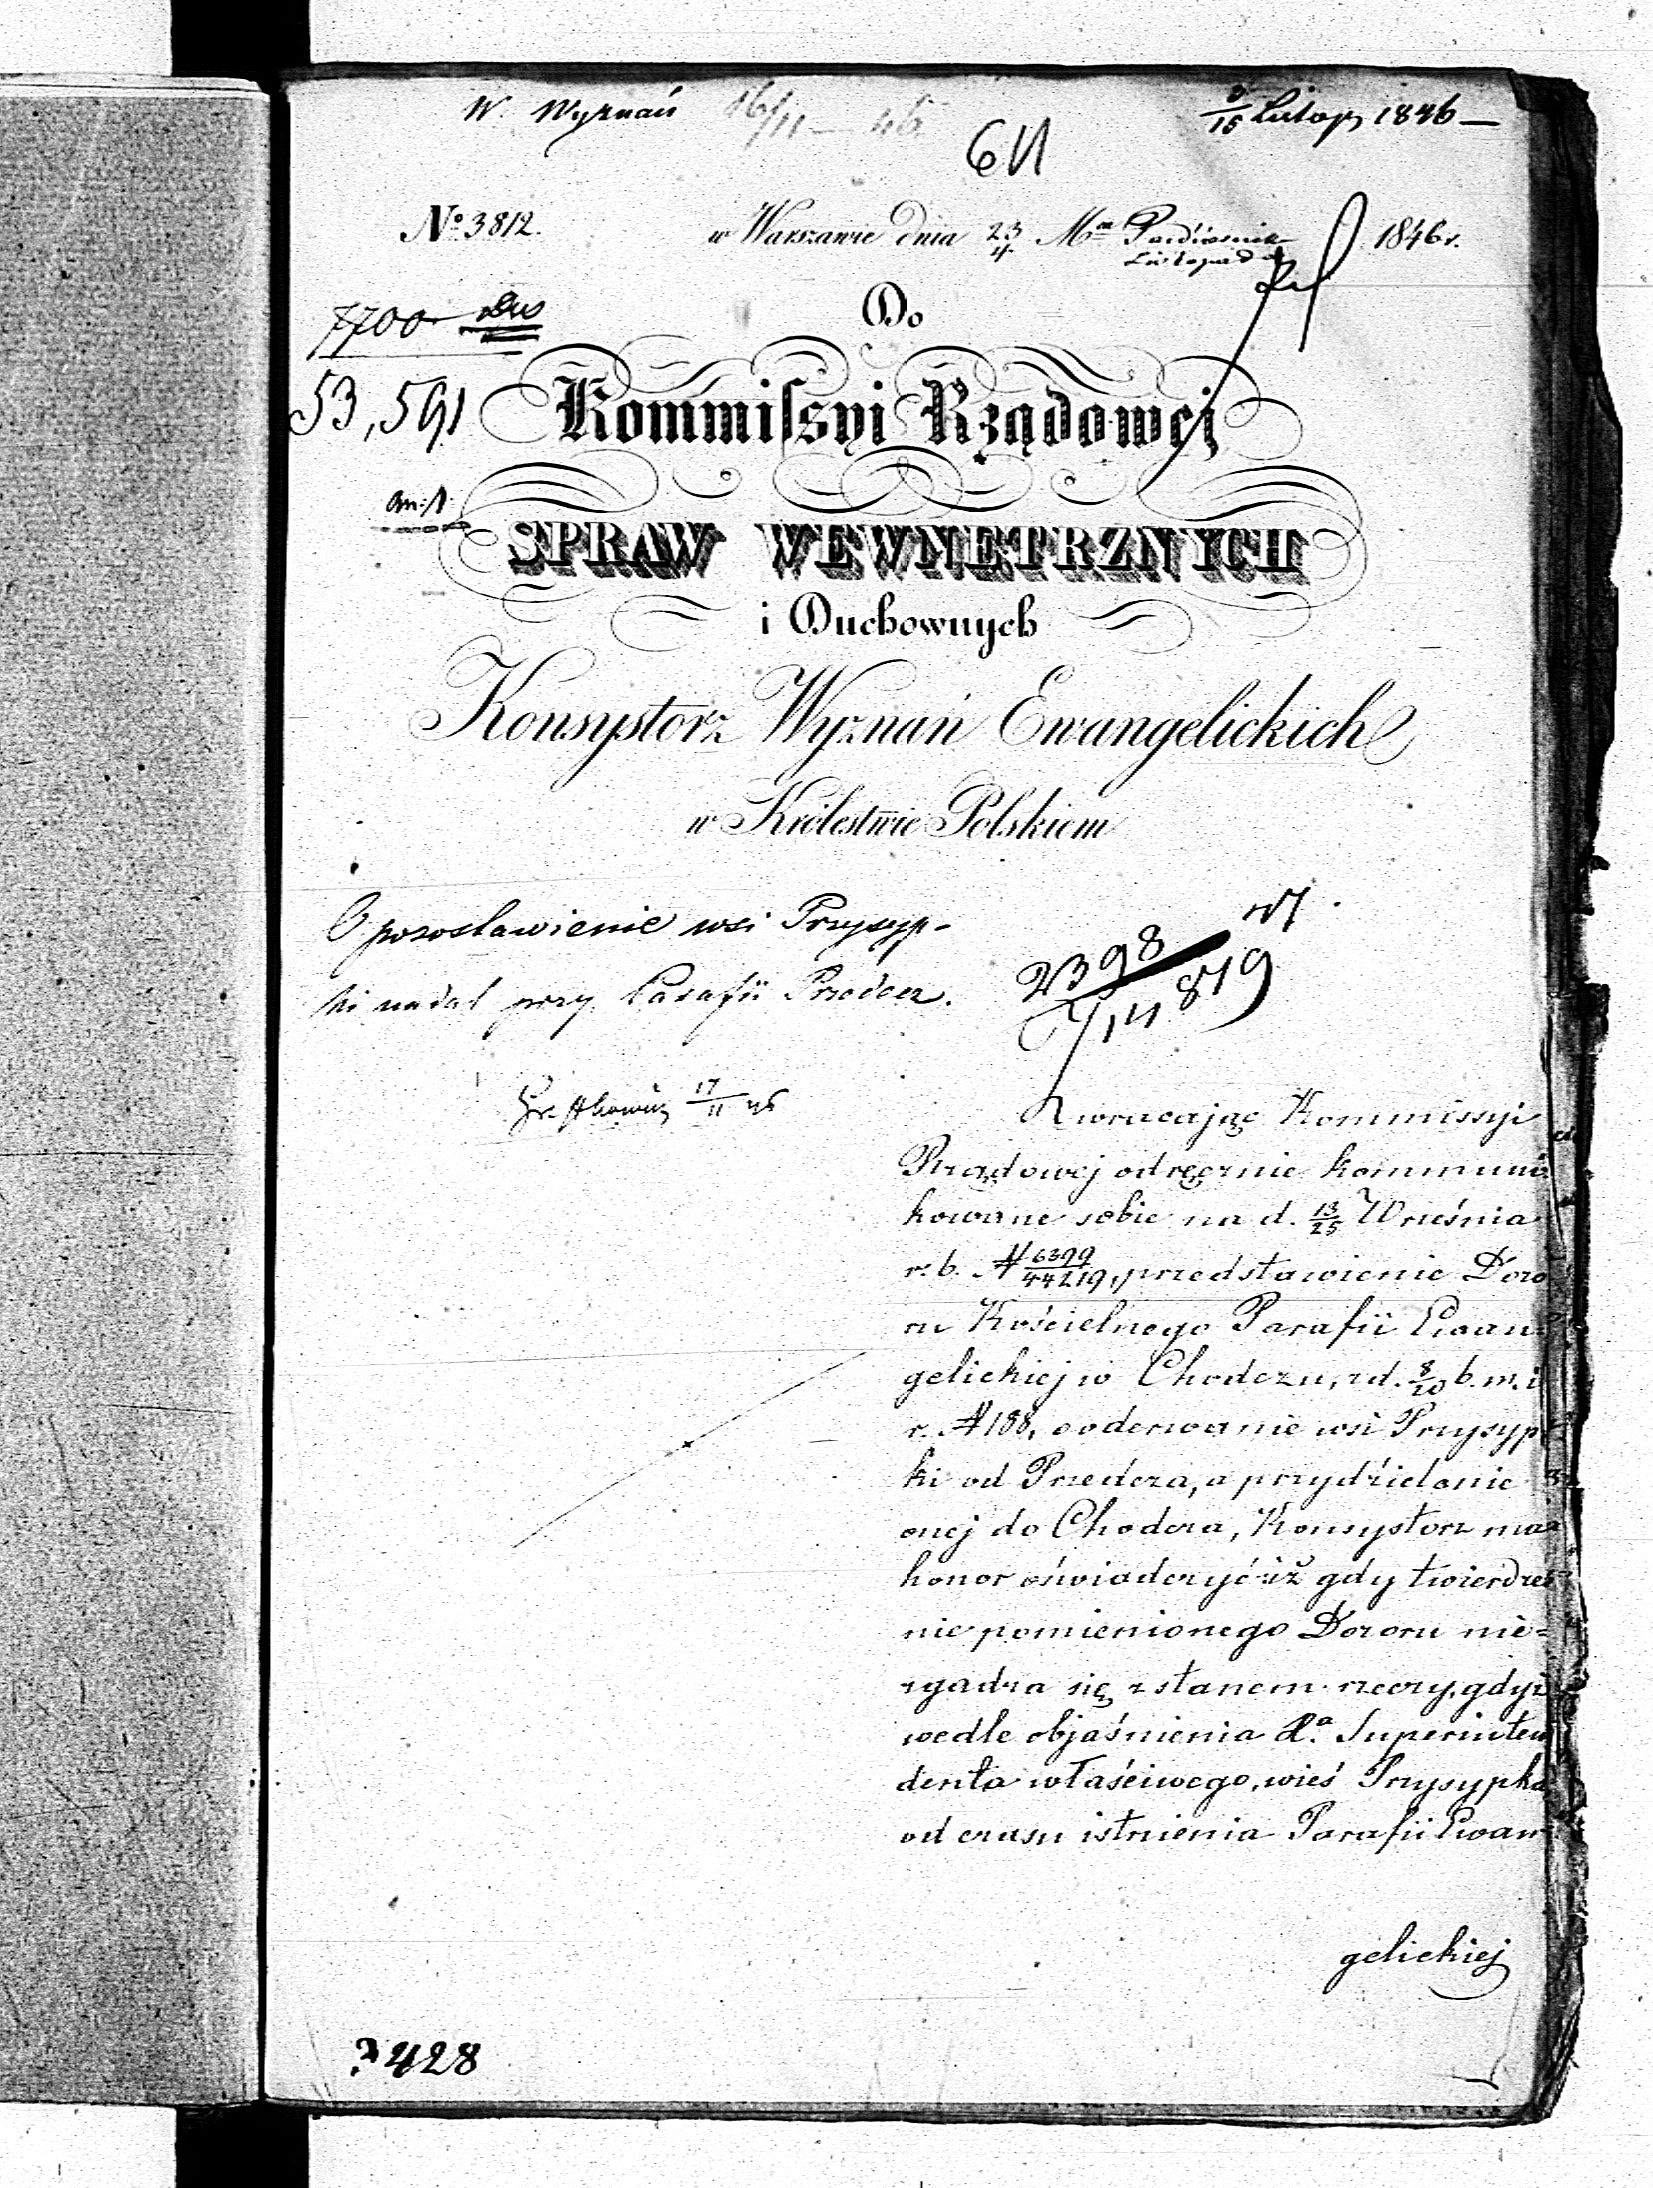 W. Wyznań 16/11 – 46
3/15 Listop 1846 –
No 3812.
w Warszawie dnia 23/4 Mca Październik/Listopada 1846 r.
Do
7700
53,591
Kommissyi Rządowej
SPRAW WEWNĘTRZNYCH
i Duchownych
Konsystorz Wyznań Ewangelickich
w Królestwie Polskiem
O pozostawienie wsi Przysyp-
ki nadal przy Parafii Przedecz.
2398
819
17/11 46
Zwracając Kommissyi
Rządowej odręcznie kommuni-
kowane sobie na d. 13/25 Września
r. b. N 6399/44219, przedstawienie Dozo
ru Kościelnego Parafii Ewan-
gelickiej w Chodczu, z d. 8/20 b. m. i
r. N 188, o oderwanie wsi Przysyp
ki od Przedcza, a przydzielenie
onej do Chodcza, Konsystorz ma
honor oświadczyć iż gdy twierdze
nie pomienionego Dozoru nie-
zgadza się z stanem rzeczy, gdyż
wedle objaśnienia Xa. Superinten
denta właściwego, wieś Przysypka
od czasu istnienia Parafii Ewan
gelickiej
428